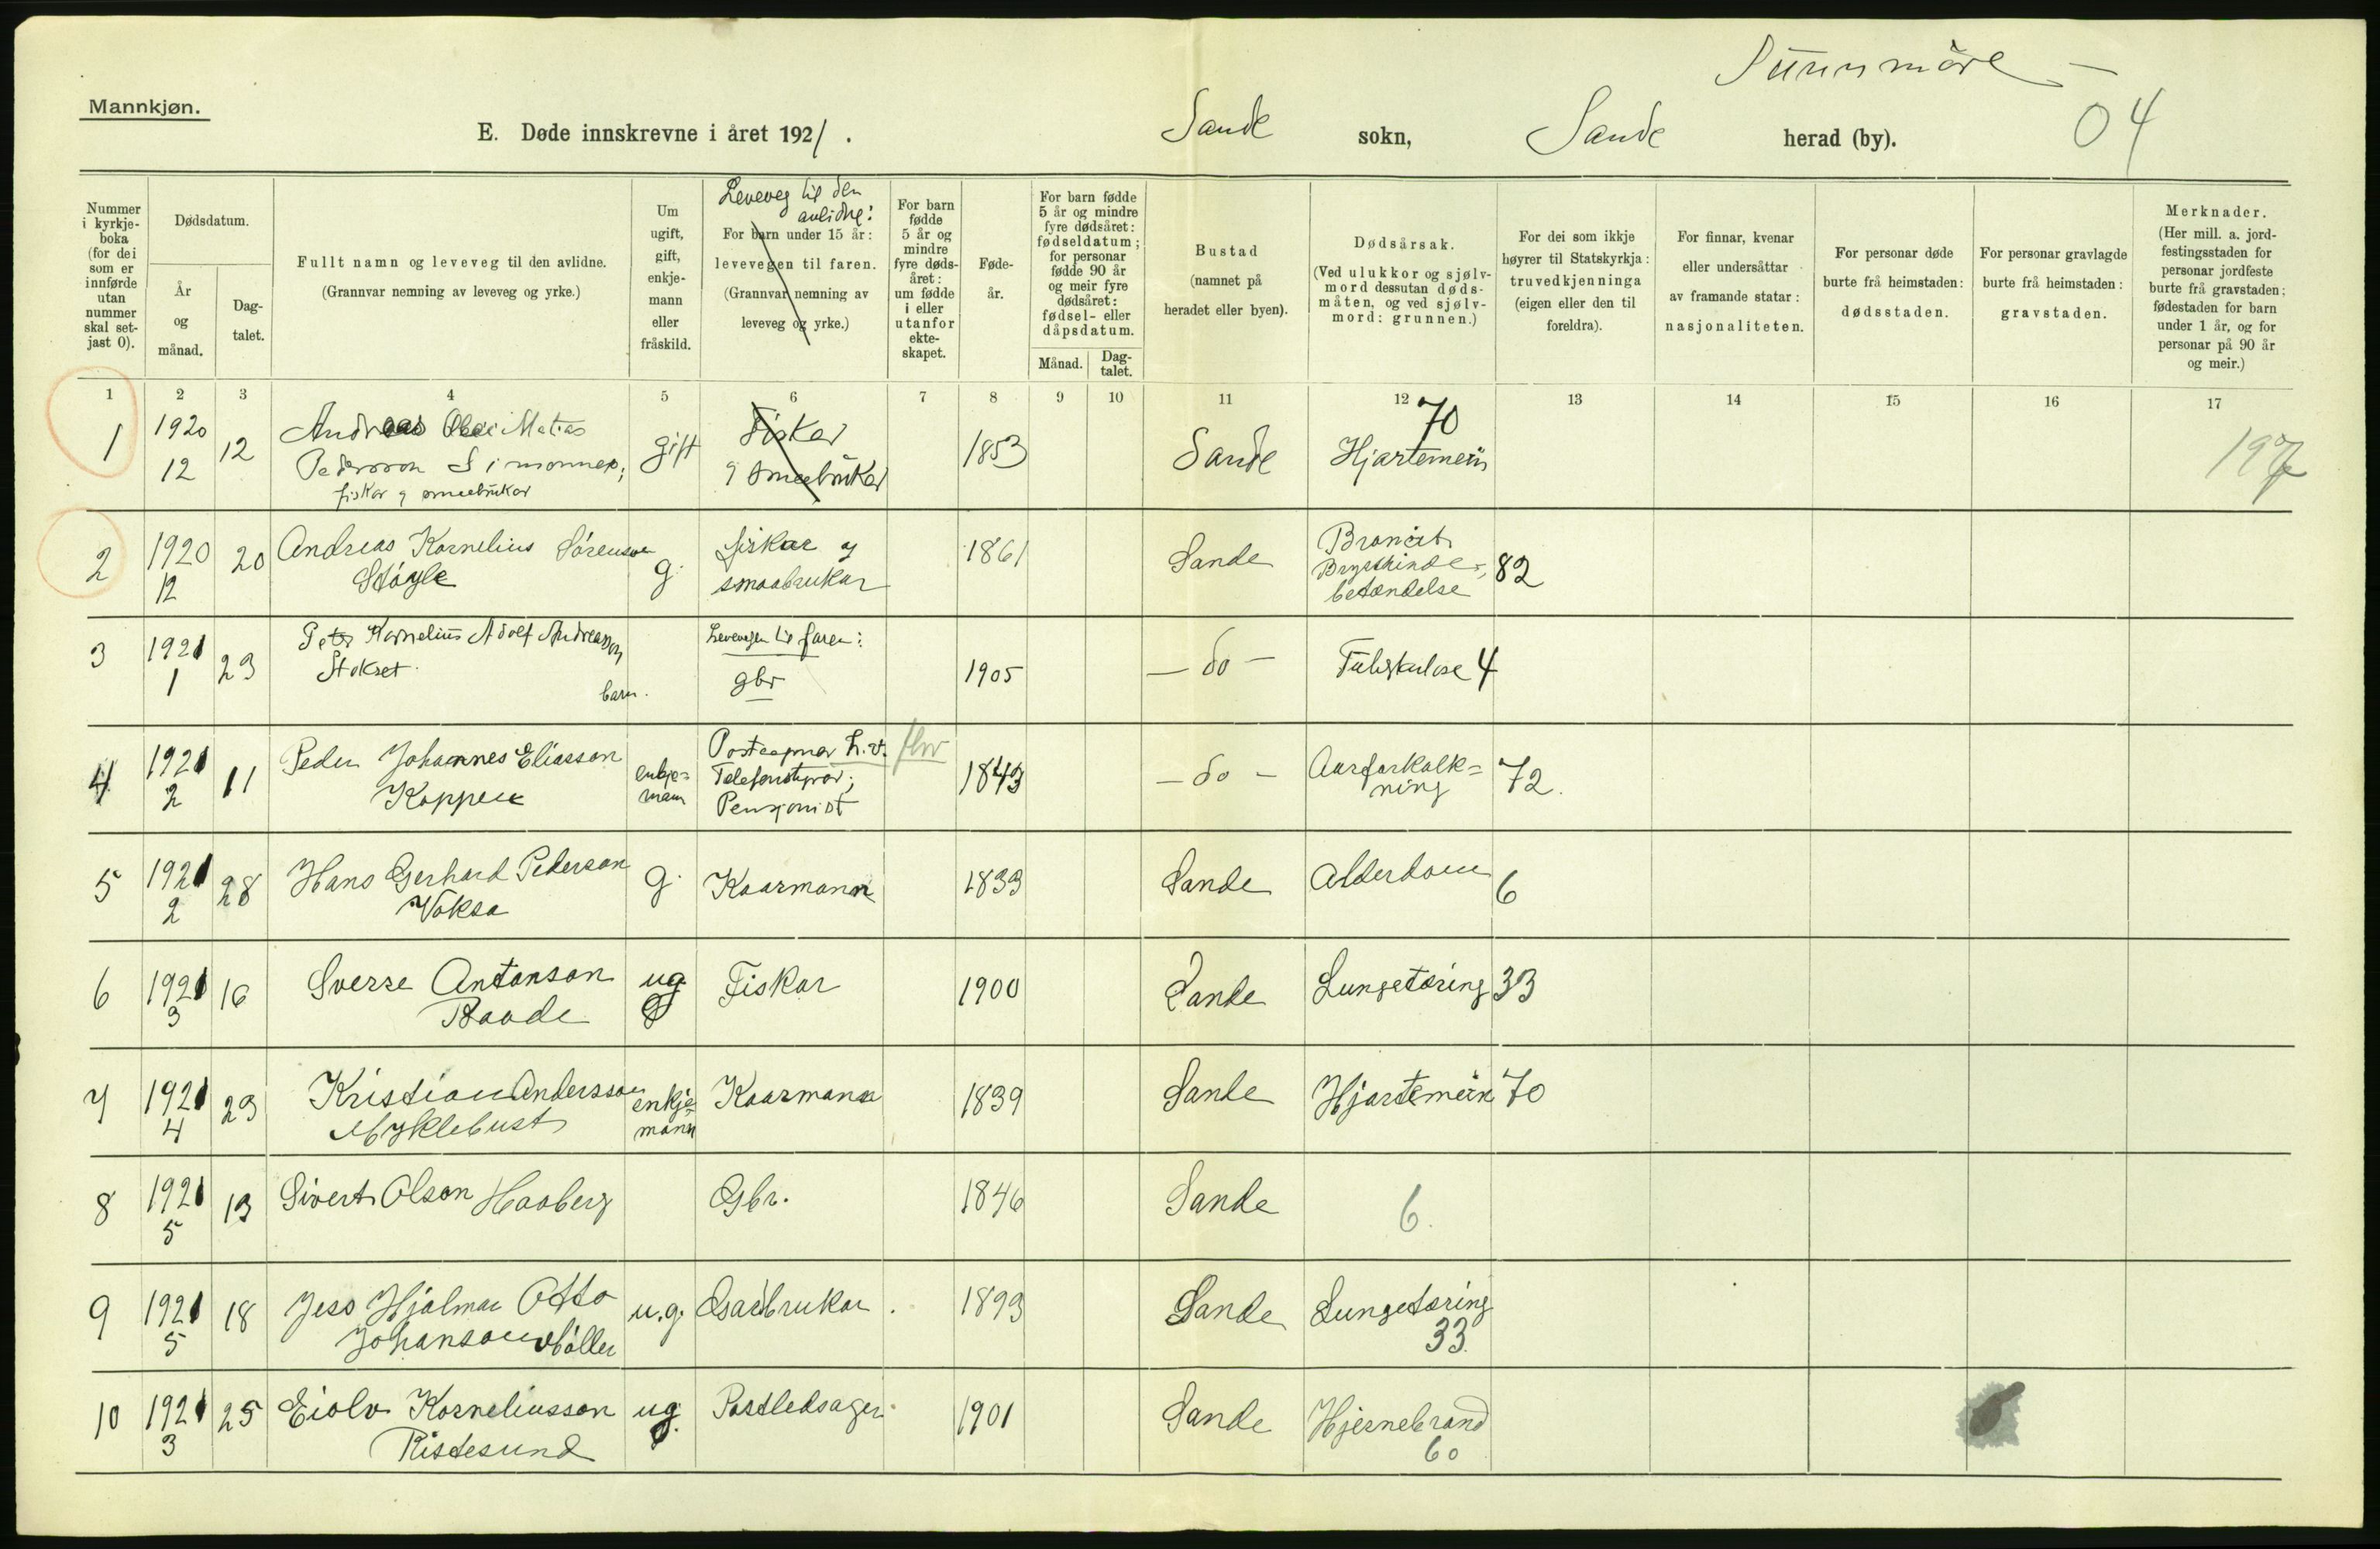 Sunnmöre –
Mannkjøn.
E. Døde innskrevne i året 1921. Sande sokn, Sande herad (by). 04
Nummer i kyrkje-boka (for dei som er innførde utan nummer skal set-jast 0).
Dødsdatum.
År og månad.
Dag-talet.
Fullt namn og leveveg til den avlidne.
(Grannvar nemning av leveveg og yrke.)
Um ugift, gift, enkje-mann eller fråskild.
Leveveg til den avlidne:
For barn under 15 år:
levevegen til faren.
(Grannvar nemning av
leveveg og yrke.)
For barn fødde 5 år og mindre fyre døds-året: um fødde i eller utanfor ekte-skapet.
Føde-år.
For barn fødde 5 år og mindre fyre dødsåret: fødseldatum; for personar fødde 90 år og meir fyre dødsåret: fødsel- eller dåpsdatum.
Månad.
Dag-talet.
Bustad
(namnet på
heradet eller byen).
Dødsårsak.
(Ved ulukkor og sjølv-mord dessutan døds-måten, og ved sjølv-mord: grunnen.)
For dei som ikkje høyrer til Statskyrkja: truvedkjenninga (eigen eller den til foreldra).
For finnar, kvenar eller undersåttar av framande statar: nasjonaliteten.
For personar døde burte frå heimstaden: dødsstaden.
For personar gravlagde burte frå heimstaden: gravstaden.
Merknader.
(Her mill. a. jord-festingsstaden for personar jordfeste burte frå gravstaden; fødestaden for barn under 1 år, og for personar på 90 år og meir.)
1 2 3 4 5 6 7 8 9 10 11 12 13 14 15 16 17
1 1920 12 12 Andreas Matias gift Fiskar 1853 Sande Hjartemein 70 197
Pederson Simonnes; og smaabrukar
fiskar og smaabrukar
2 1920 12 20 Andreas Kornelius Sørenson g. fiskar og 1861 Sande Bronkit
Støyle smaabrukar Brysthinde- 82
betændelse
3 1921 1 23 Peter Kornelius Adolf Andreasson Levevegen til faren: 1905 – do – Tuberkulose 4
Stokset. barn. gbr
4 1921 2 11 Peder Johannes Eliasson enkje- Postaapnar h.v. 1843 – do – Aarforkalk- 72.
Koppen mann Telefonstyrar; ning
Pensjonist
5 1921 2 28 Hans Gerhard Pederson g. Kaarmann 1833 Sande Alderdom 6
Voksa
6 1921 3 16 Sverre Antonson ug Fiskar 1900 Sande Lungetæring 33
Baade
7 1921 4 23 Kristian Andersson enkje- Kaarmann 1839 Sande Hjartemein 70
Myklebust mann
8 1921 5 13 Sivert Olson Haaberg Gbr. 1846 Sande 6.
9 1921 5 18 Jess Hjalmar Otto u.g. Gardbrukar. 1893 Sande Lungetæring
Johanson Møller 33.
10 1921 3 25 Eiolv Korneliusson ug. Postledsager 1901 Sande Hjernebrand
Ristesund 60